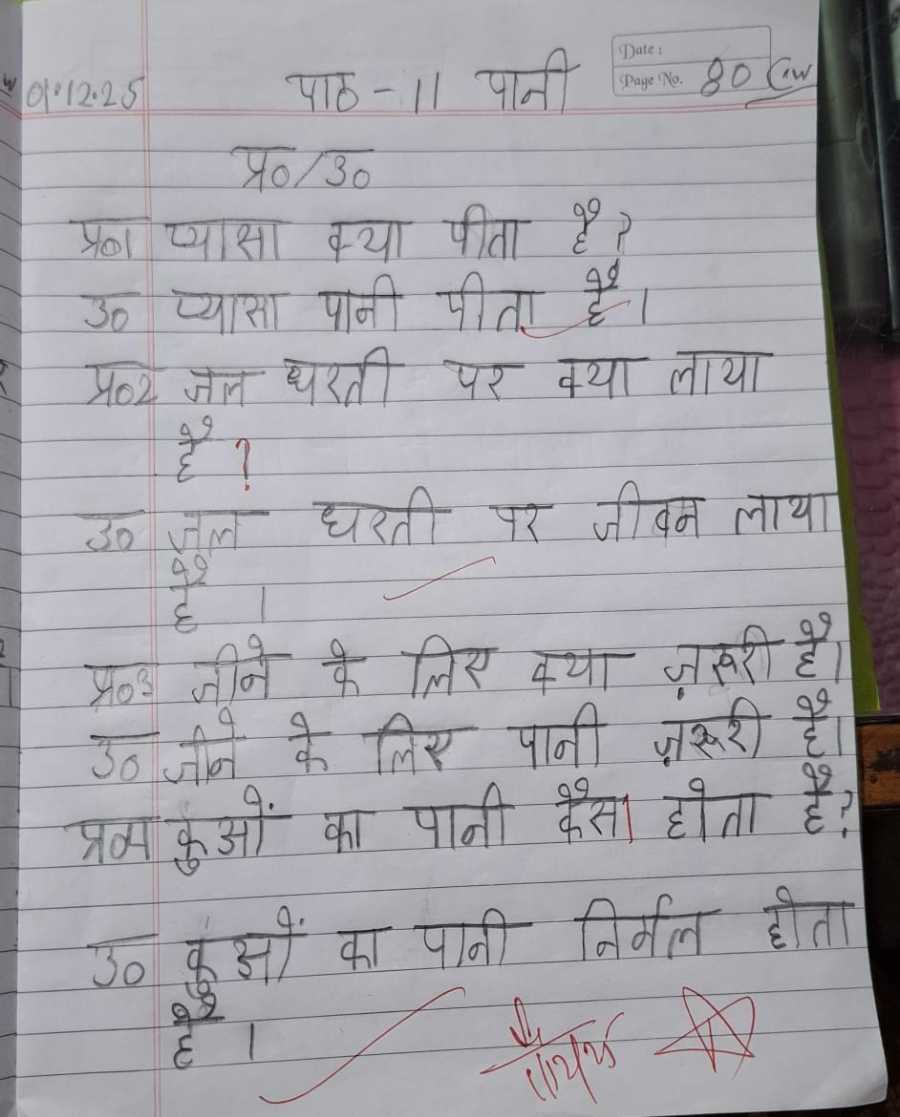 01.12.25 पाठ - 11 पानी Date :
Page No. 80 C.W
प्र०/उ०
प्र०1 प्यासा क्या पीता है ?
उ० प्यासा पानी पीता है ।
प्र०2 जल धरती पर क्या लाया
है ?
उ० जल धरती पर जीवन लाया
है ।
प्र०3 जीने के लिए क्या ज़रूरी है।
उ० जीने के लिए पानी ज़रूरी है।
प्र०4 कुओं का पानी कैसा होता है?
उ० कुओं का पानी निर्मल होता
है ।
1/12/25